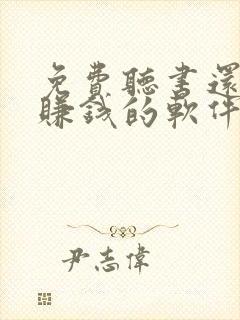 免費聽書還
賺錢的軟件
尹志偉